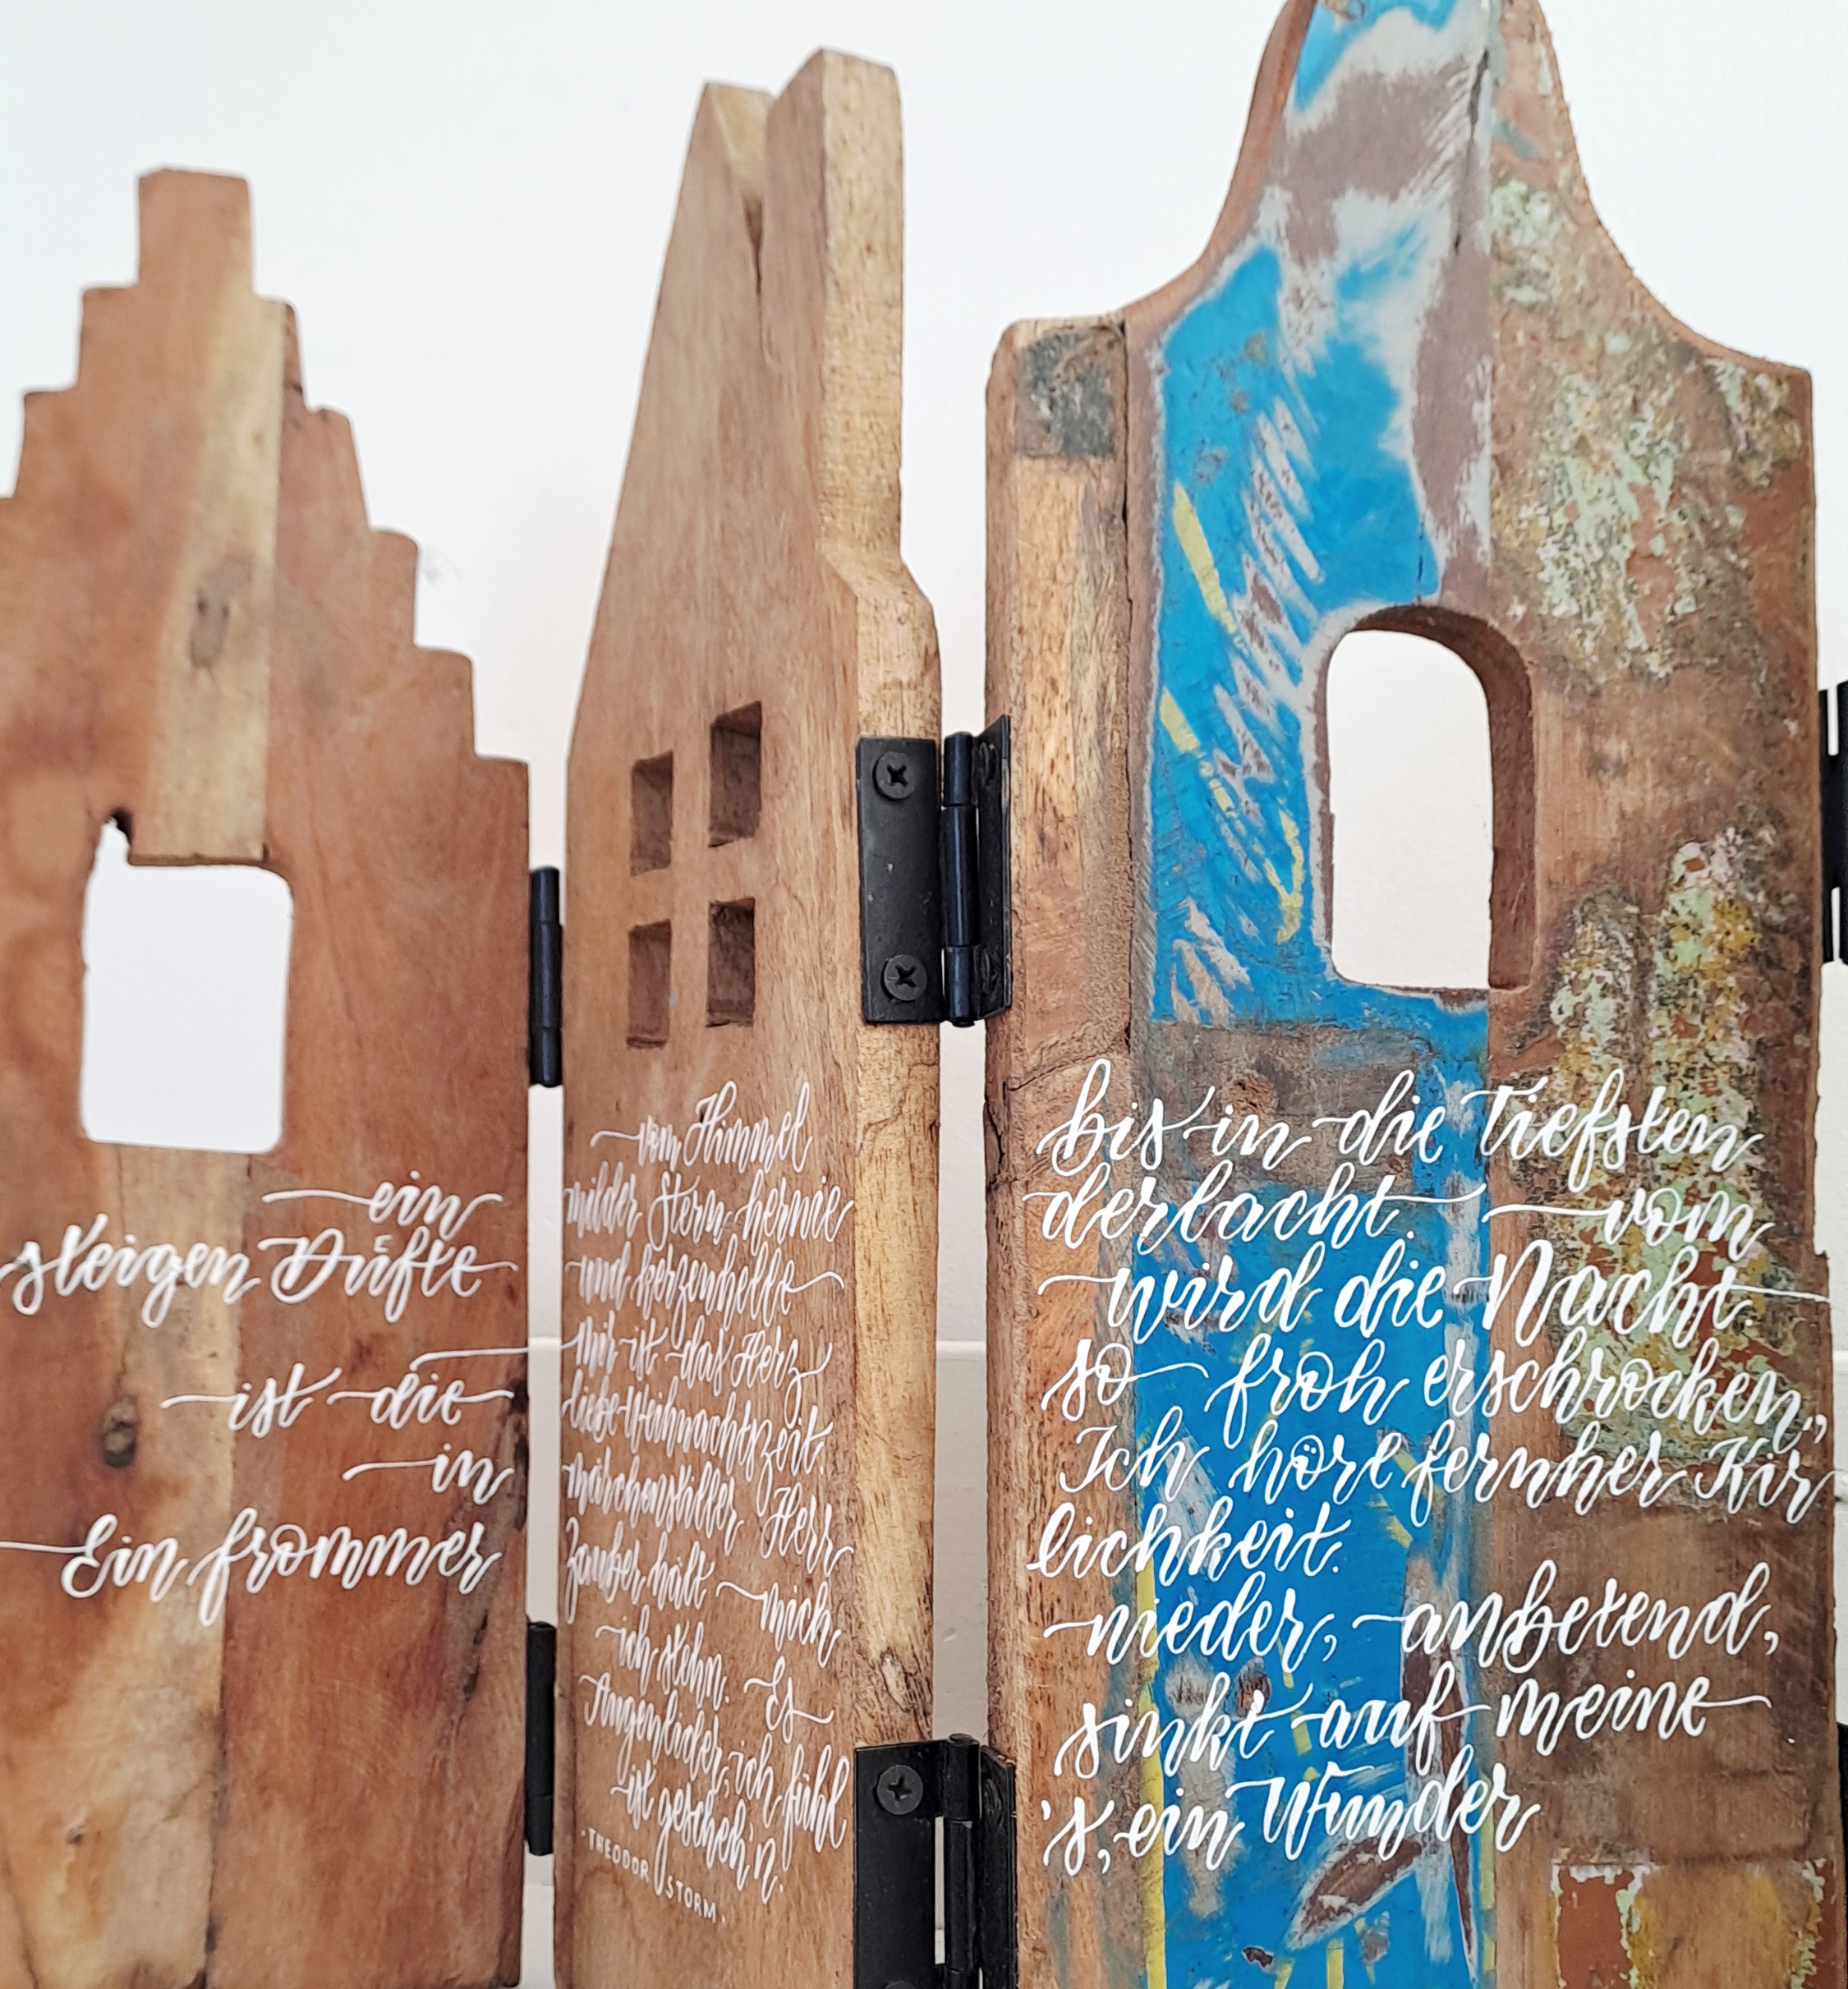 vom Himmel bis in die tiefsten
ein milder Stern hernie derlacht. vom
steigen Düfte und kerzenhelle wird die Nacht.
mir ist das Herz so froh erschrocken,
ist die liebe Weihnachtszeit. Ich höre fernher Kir
in märchenstiller Herr lichkeit.
Ein frommer Zauber hält mich nieder, anbetend,
ich stehn. Es sinkt auf meine
Augenlider, ich fühl 's, ein Wunder
ist gescheh'n.
·THEODOR STORM·